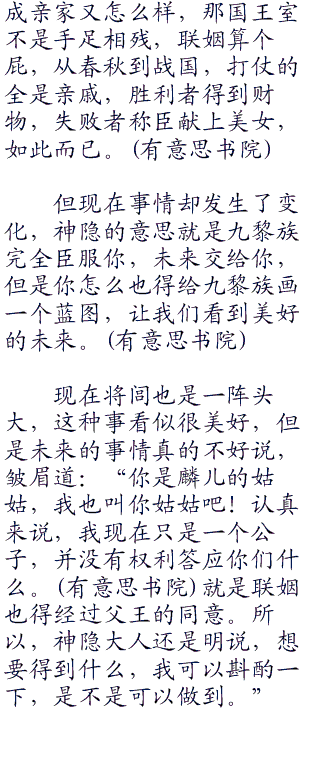 成亲家又怎么样，那国王室
不是手足相残，联姻算个
屁，从春秋到战国，打仗的
全是亲戚，胜利者得到财
物，失败者称臣献上美女，
如此而已。(有意思书院)
但现在事情却发生了变
化，神隐的意思就是九黎族
完全臣服你，未来交给你，
但是你怎么也得给九黎族画
一个蓝图，让我们看到美好
的未来。(有意思书院)
现在将闾也是一阵头
大，这种事看似很美好，但
是未来的事情真的不好说，
皱眉道：“你是麟儿的姑
姑，我也叫你姑姑吧！认真
来说，我现在只是一个公
子，并没有权利答应你们什
么。(有意思书院)就是联姻
也得经过父王的同意。所
以，神隐大人还是明说，想
要得到什么，我可以斟酌一
下，是不是可以做到。”